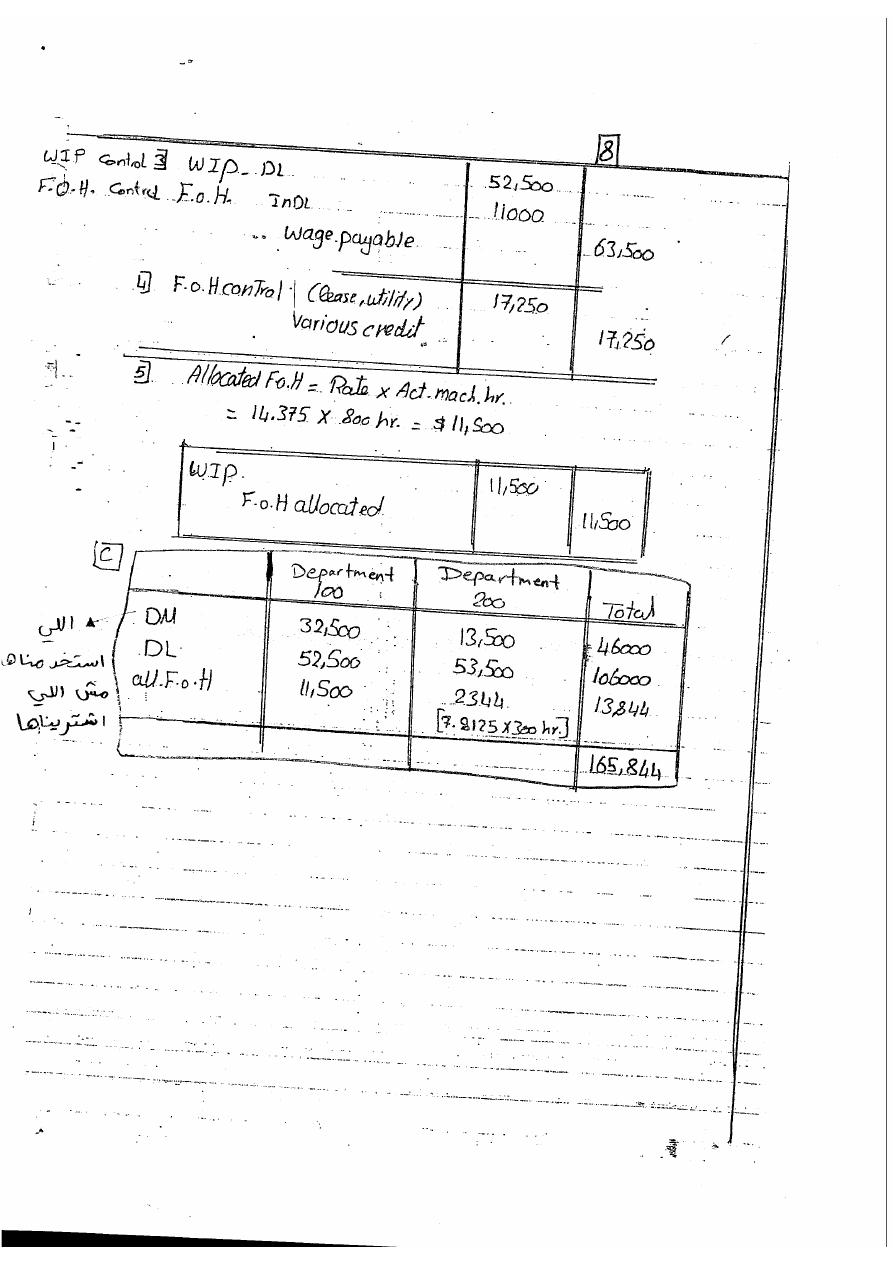 8
WIP Control 3 WIP- DL 52,500
F.O.H. Control F.o.H. InDL 11000
Wage payable 63,500
4 F.o.H control (lease, utility) 17,250
Various credit. 17,250
5 Allocated F.o.H = Rate x Act. mach. hr.
= 14.375 X 800 hr. = $ 11,500
WIP. 11,500
F.o.H allocated 11,500
C
Department 100 Department 200 Total
DM 32,500 13,500 46000
DL 52,500 53,500 106000
all. F.o.H 11,500 2344 13,844
[7.8125 X 300 hr.]
165,844
* اللي
استخدمناها
مش اللي
اشتريناها